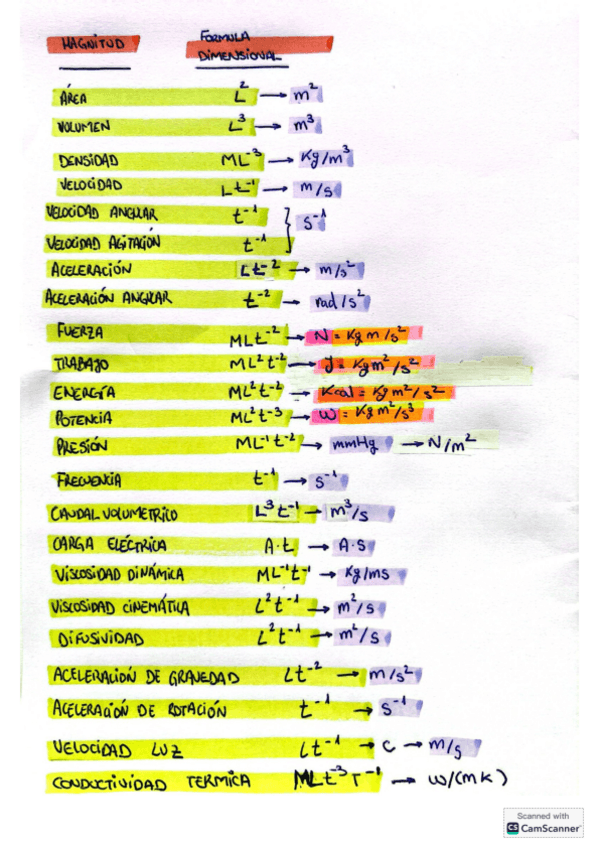 MAGNITUD FORMULA
DIMENSIONAL
ÁREA L² → m²
VOLUMEN L³ → m³
DENSIDAD ML⁻³ → Kg/m³
VELOCIDAD Lt⁻¹ → m/s
VELOCIDAD ANGULAR t⁻¹ } s⁻¹
VELOCIDAD AGITACIÓN t⁻¹
ACELERACIÓN Lt⁻² → m/s²
ACELERACIÓN ANGULAR t⁻² → rad/s²
FUERZA MLt⁻² → N = Kg m/s²
TRABAJO ML² t⁻² → J = Kg m²/s²
ENERGÍA ML² t⁻² → Kcal = Kg m²/s²
POTENCIA ML² t⁻³ → W = Kg m²/s³
PRESIÓN ML⁻¹ t⁻² → mmHg → N/m²
FRECUENCIA t⁻¹ → s⁻¹
CAUDAL VOLUMETRICO L³ t⁻¹ → m³/s
CARGA ELÉCTRICA A·t → A·s
VISCOSIDAD DINÁMICA ML⁻¹t⁻¹ → Kg/ms
VISCOSIDAD CINEMÁTICA L² t⁻¹ → m²/s
DIFUSIVIDAD L² t⁻¹ → m²/s
ACELERACIÓN DE GRAVEDAD Lt⁻² → m/s²
ACELERACIÓN DE ROTACIÓN t⁻¹ → s⁻¹
VELOCIDAD LUZ Lt⁻¹ → C → m/s
CONDUCTIVIDAD TERMICA MLt⁻³ T⁻¹ → W/(mK)
Scanned with
CS CamScanner